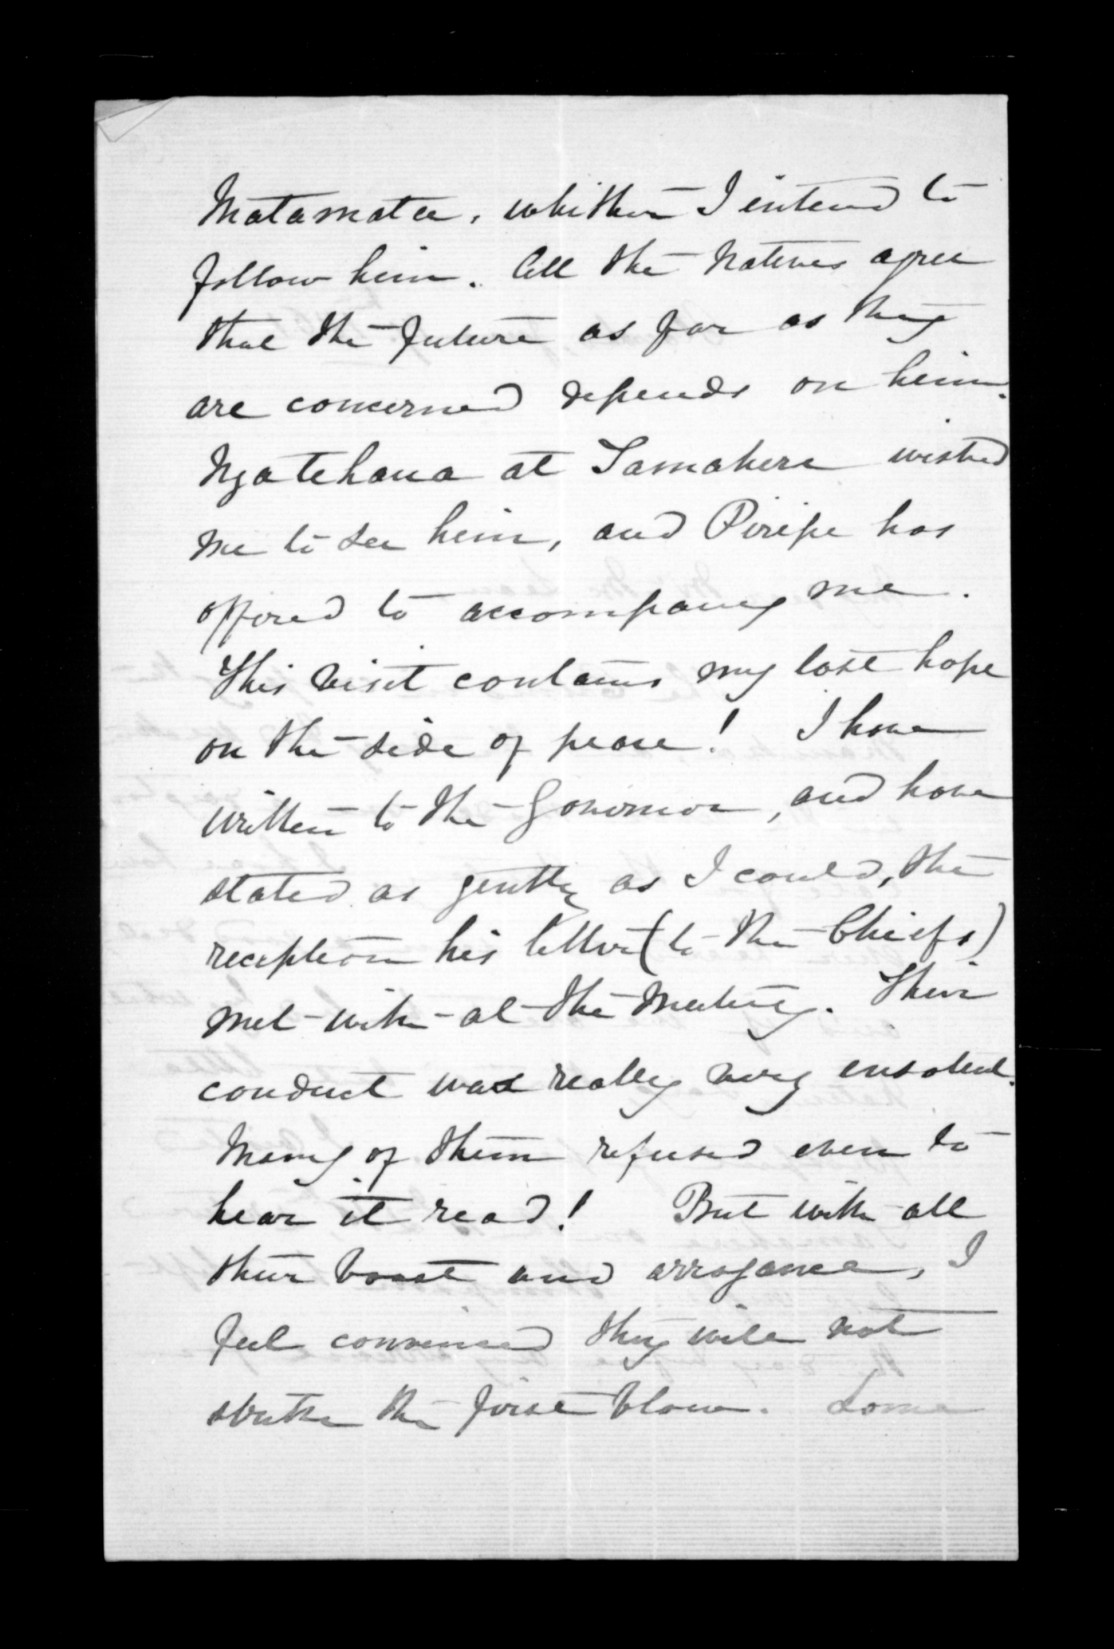 Matamata, whither I intend to
follow him. All the Natives agree
that the future as far as they
are concerned depends on him.
Ngatehaua at Tamahere wished
me to see him, and Piripi has
offered to accompany me.
This visit contains my last hope
on the side of peace! I have
written to the Governor, and have
stated as gently as I could, the
reception his letter (to the Chiefs)
met with at the Meeting. Their
conduct was really very insolent.
Many of them refused even to
hear it read! But with all
their boast and arrogance, I
feel convinced they will not
strike the first blow. Some